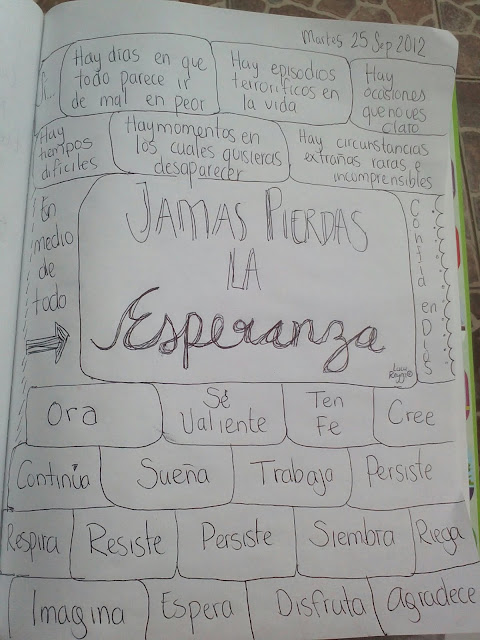 Martes 25 Sep 2012
Sí...
Hay días en que
todo parece ir
de mal en peor
Hay episodios
terroríficos en
la vida
Hay
ocasiones
que no ves
claro
Hay
tiempos
difíciles
Hay momentos en
los cuales quisieras
desaparecer
Hay circunstancias
extrañas raras e
incomprensibles
En
medio
de
todo
JAMAS PIERDAS
LA
Esperanza
Confía en Dios
Ora
Sé
Valiente
Ten
Fe
Cree
Continúa
Sueña
Trabaja
Persiste
Respira
Resiste
Persiste
Siembra
Riega
Imagina
Espera
Disfruta
Agradece